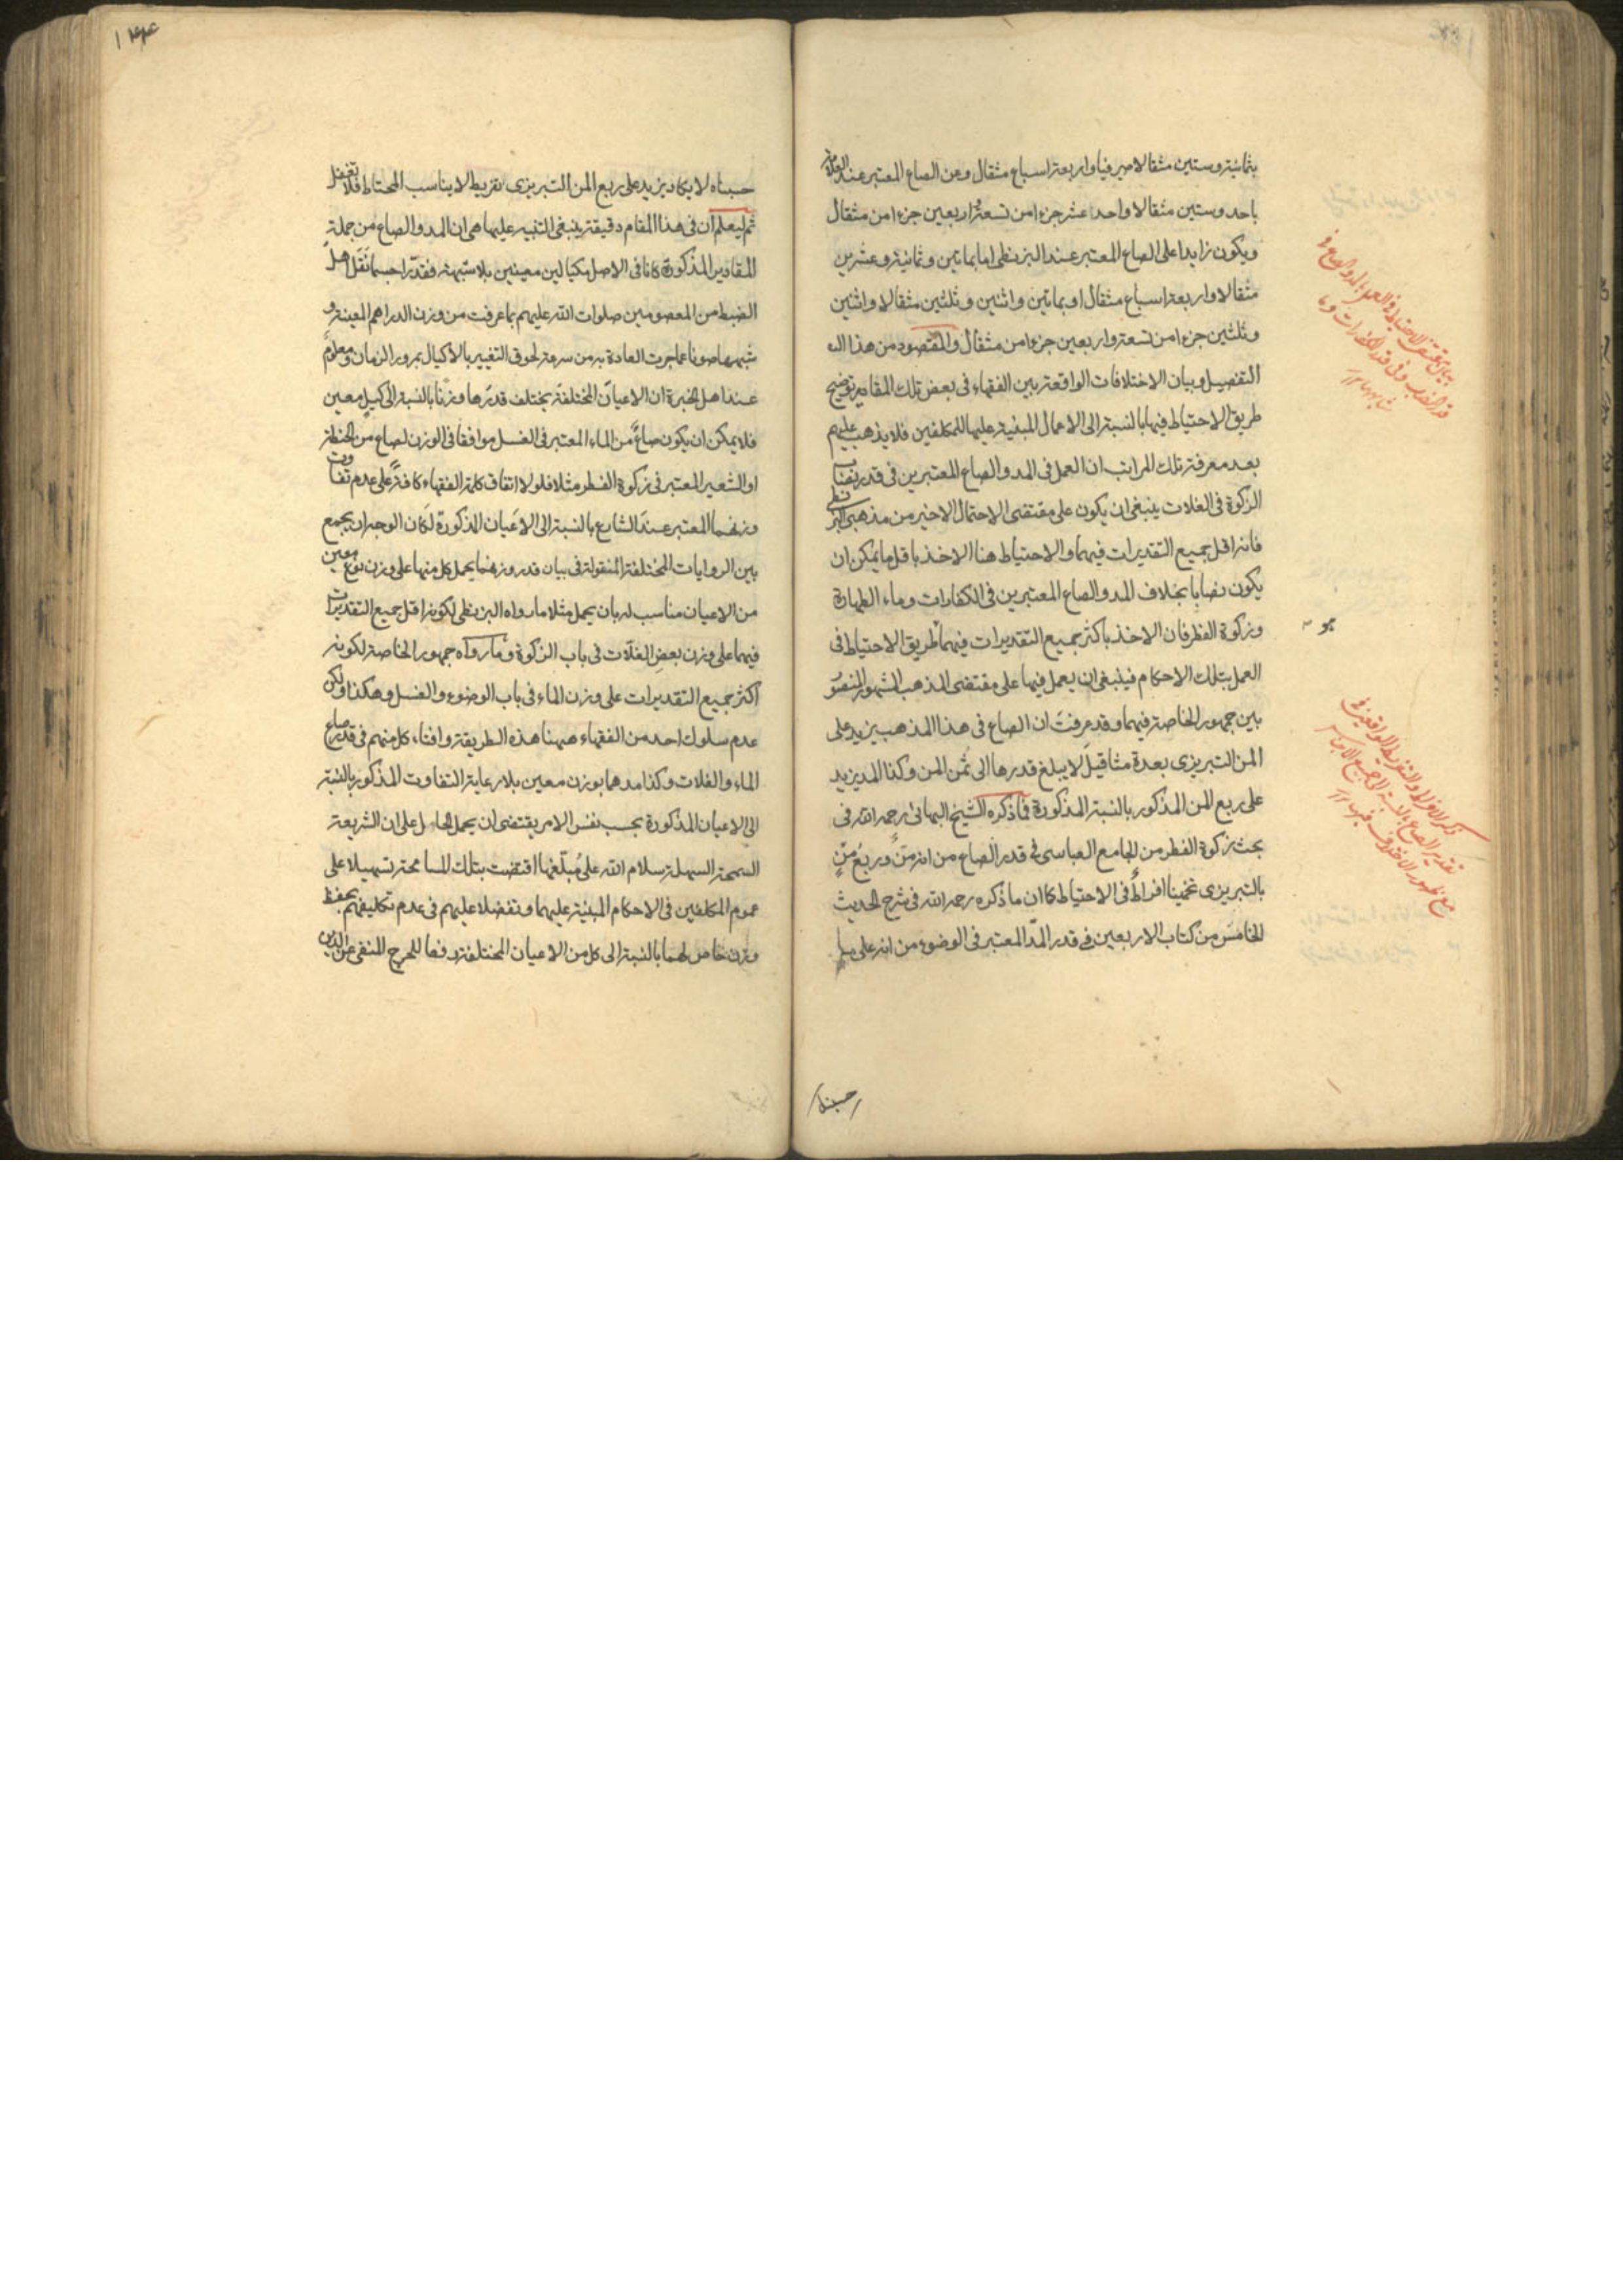 بثمانية وستين مثقالا صيرفيا واربعة اسباع مثقال ومن الصاع المعتبر عند العلامة
باحد وستين مثقالا واحد عشر جزءا من تسعة واربعين جزءا من مثقال
ويكون زايدا على الصاع المعتبر عند البزنطى اما بماتين وثمانية وعشرين
مثقالا واربعة اسباع مثقال او بماتين واثنين وثلثين مثقالا واثنين
وثلثين جزءا من تسعة واربعين جزءا من مثقال والمقصود من هذا
التفصيل وبيان الاختلافات الواقعة بين الفقهاء فى بعض تلك المقادير توضيح
طريق الاحتياط فيها بالنسبة الى الاعمال المبنية عليها للمكلفين فلا يذهب عليهم
بعد معرفة تلك المراتب ان العمل فى المد والصاع المعتبرين فى قدر نصاب
الزكوة فى الغلات ينبغى ان يكون على مقتضى الاحتمال الاخير من مذهبى البزنطى
فانه اقل جميع التقديرات فيهما والاحتياط هنا الاخذ باقل ما يمكن ان
يكون نصابا بخلاف المد والصاع المعتبرين فى الكفارات وماء الطهارة
وزكوة الفطر فان الاخذ باكثر جميع التقديرات فيهما طريق الاحتياط فى
العمل بتلك الاحكام فينبغى ان يعمل فيها على مقتضى المذهب المشهور المنصور
بين جمهور الخاصة فيهما وقد عرفت ان الصاع فى هذا المذهب يزيد على
المن التبريزى بعدة مثاقيل لا يبلغ قدرها الى ثمن المن وكذا المد يزيد
على ربع المن المذكور بالنسبة المذكورة فما ذكره الشيخ البهائى رحمه الله فى
بحث زكوة الفطر من الجامع العباسى فى قدر الصاع من انه من وربع من
بالتبريزى تخمينا افراط فى الاحتياط كما ان ما ذكره رحمه الله فى شرح الحديث
الخامس من كتاب الاربعين فى قدر المد المعتبر فى الوضوء من انه على ما
حسبناه
۱۴۴
حسبناه لا يكاد يزيد على ربع المن التبريزى تفريط لا يناسب المحتاط فلا تغفل
ثم ليعلم ان فى هذا المقام دقيقة ينبغى التنبيه عليها هى ان المد والصاع من جملة
المقادير المذكورة كانا فى الاصل مكيالين معينين بلا شبهة فقدرا حسبما نقل اهل
الضبط من المعصومين صلوات الله عليهم بما عرفت من وزن الدراهم المعينة و
شبهها صونا عما جرت العادة به من سرعة لحوق التغيير بالاكيال بمرور الزمان ومعلوم
عند اهل الخبرة ان الاعيان المختلفة يختلف قدرها وزنا بالنسبة الى كيل معين
فلا يمكن ان يكون صاع من الماء المعتبر فى الغسل موافقا فى الوزن لصاع من الحنطة
او الشعير المعتبر فى زكوة الفطر مثلا فلولا اتفاق كلمة الفقهاء كافة على عدم تفاوت
وزنهما المعتبر عند الشارع بالنسبة الى الاعيان المذكورة لكان الوجه ان يجمع
بين الروايات المختلفة المنقولة فى بيان قدر وزنهما يحمل كل منها على وزن نوع معين
من الاعيان مناسب له بان يحمل مثلا ما رواه البزنطى لكونه اقل جميع التقديرات
فيهما على وزن بعض الغلات فى باب الزكوة وما رواه جمهور الخاصة لكونه
اكثر جميع التقديرات على وزن الماء فى باب الوضوء والغسل وهكذا ولكن
عدم سلوك احد من الفقهاء ههنا هذه الطريقة وافتاء كل منهم فى قدر صاع
الماء والغلات وكذا مدهما بوزن معين بلا رعاية التفاوت المذكور بالنسبة
الى الاعيان المذكورة بحسب نفس الامر يقتضى ان يحمل الحاصل على ان الشريعة
السمحة السهلة سلام الله على مبلغها اقتضت بتلك المسامحة تسهيلا على
عموم المكلفين فى الاحكام المبنية عليهما وتفضلا عليهم فى عدم تكليفهم بحفظ
وزن خاص لهما بالنسبة الى كل من الاعيان المختلفة دفعا للحرج المنفى عن الدين